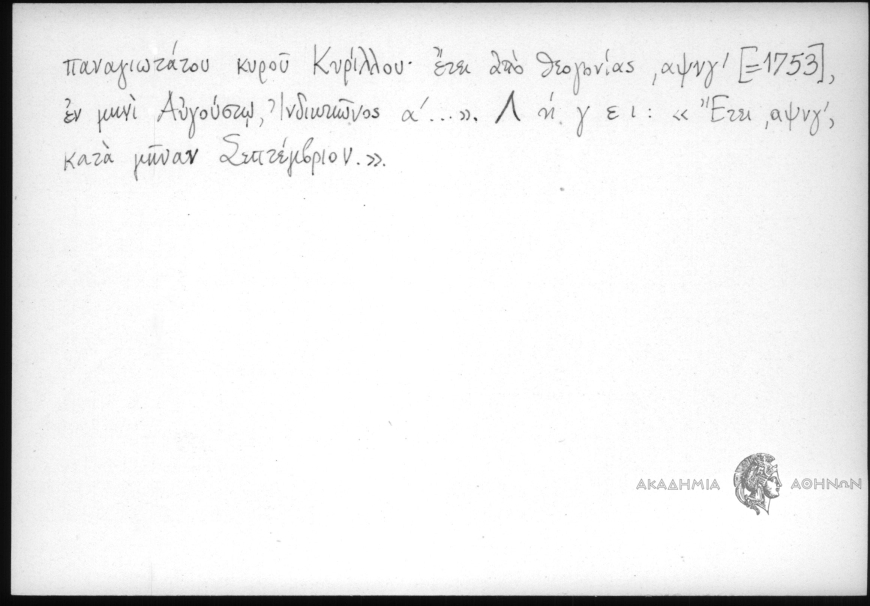 παναγιωτάτου κυροῦ Κυρίλλου· ἔτει ἀπὸ θεογονίας ͵αψνγʹ [=1753],
ἐν μηνὶ Αὐγούστῳ, Ἰνδικτιῶνος αʹ...». Λ ή γ ε ι : « Ἔτει ͵αψνγʹ,
κατὰ μῆναν Σεπτέμβριον.».
ΑΚΑΔΗΜΙΑ ΑΘΗΝΩΝ